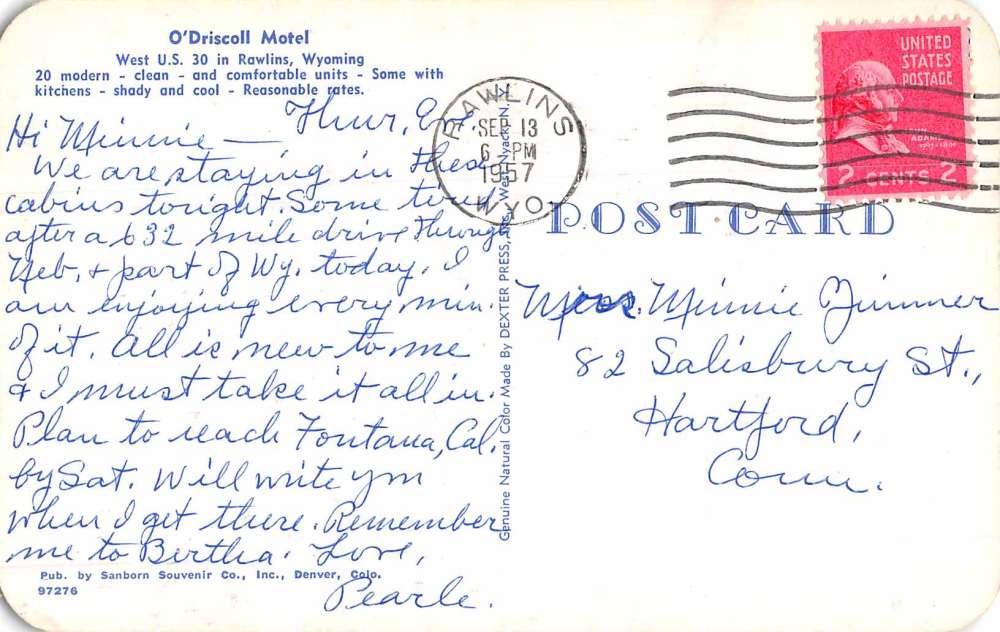 O'Driscoll Motel
West U.S. 30 in Rawlins, Wyoming
20 modern - clean - and comfortable units - Some with
kitchens - shady and cool - Reasonable rates.
Thur. Eve.
Hi Minnie —
We are staying in these
cabins tonight. Some
after a 632 mile drive through
Neb. & part of Wy. today. I
am enjoying every min.
of it. All is new to me
& I must take it all in.
Plan to reach Fontana, Cal.
by Sat. Will write you
when I get there. Remember
me to Bertha. Love,
Pearle.
Pub. by Sanborn Souvenir Co., Inc., Denver, Colo.
97276
Genuine Natural Color Made By DEXTER PRESS, West Nyack, N.Y.
RAWLINS
SEP 13
6 PM
1957
WYO.
UNITED
STATES
POSTAGE
2 CENTS 2
POST CARD
Miss. Minnie Zimmer
82 Salisbury St.,
Hartford,
Conn.